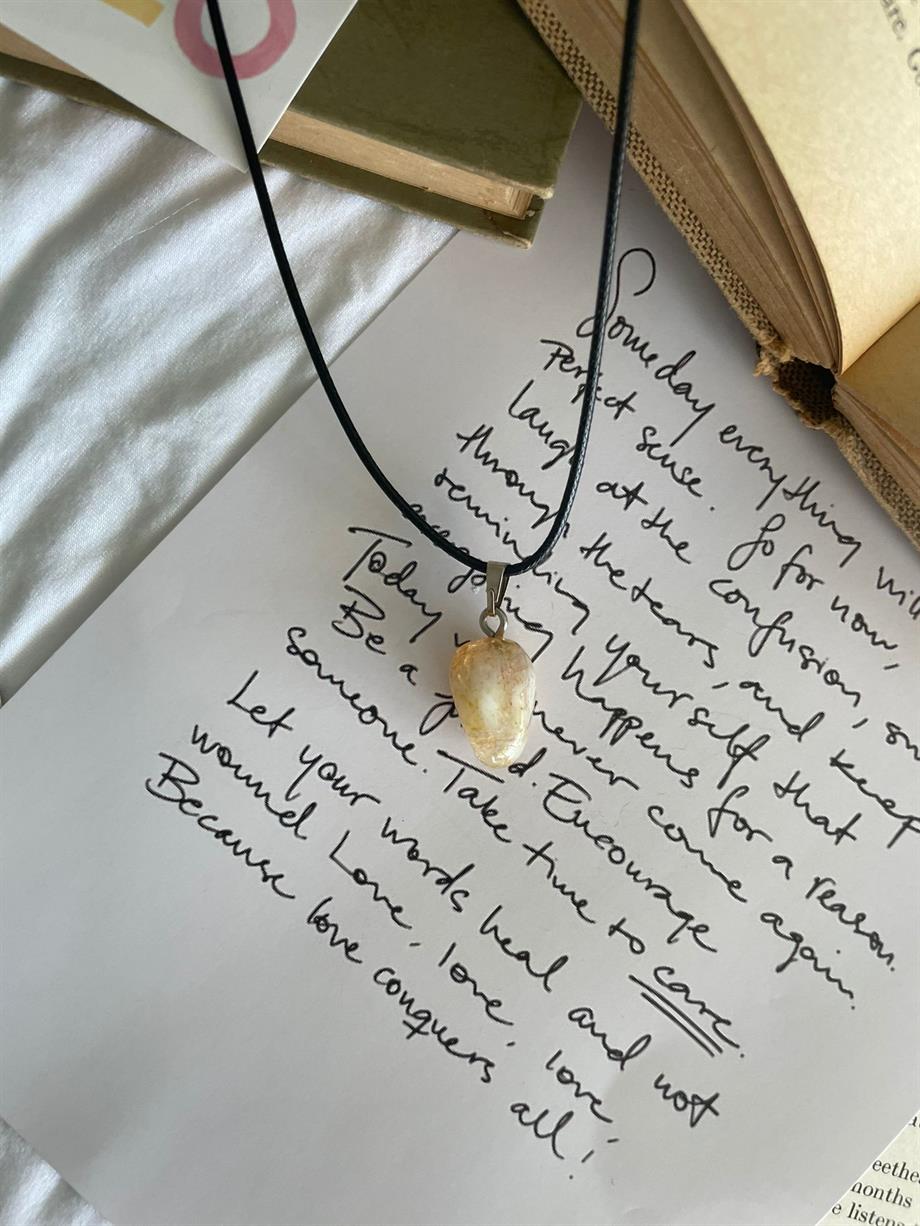 Someday everything will
Perfect sense. So for now,
laugh at the confusion,
through the tears, and keep
reminding yourself that
everything happens for a reason.
Today never come again.
Be a Encourage
someone. Take time to care.
Let your words heal and not
wound Love, love, love,
Because love conquers all!
months